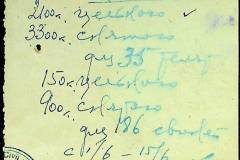 2100к. цельного
3300к. снятого
для 35 телят
150к. цельного
900к. снятого
для 186 свиней
с 1/6 – 15/6